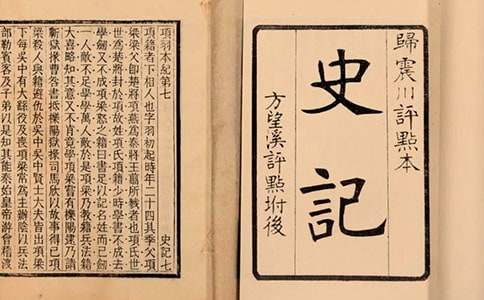 歸震川評點本
史記
方望溪評點坿後
項羽本紀第七
史記七
項籍者下相人也字羽初起時年二十四其季父項
梁梁父即楚將項燕為秦將王翦所戮者也項氏世
世為楚將封於項故姓項氏項籍少時學書不成去
學劍又不成項梁怒之籍曰書足以記名姓而已劍
一人敵不足學學萬人敵於是項梁乃教籍兵法籍
大喜略知其意又不肯竟學項梁嘗有櫟陽逮乃請
蘄獄掾曹咎書抵櫟陽獄掾司馬欣以故事得已項
梁殺人與籍避仇於吳中吳中賢士大夫皆出項梁
下每吳中有大繇役及喪項梁常為主辦陰以兵法
部勒賓客及子弟以是知其能秦始皇帝游會稽渡